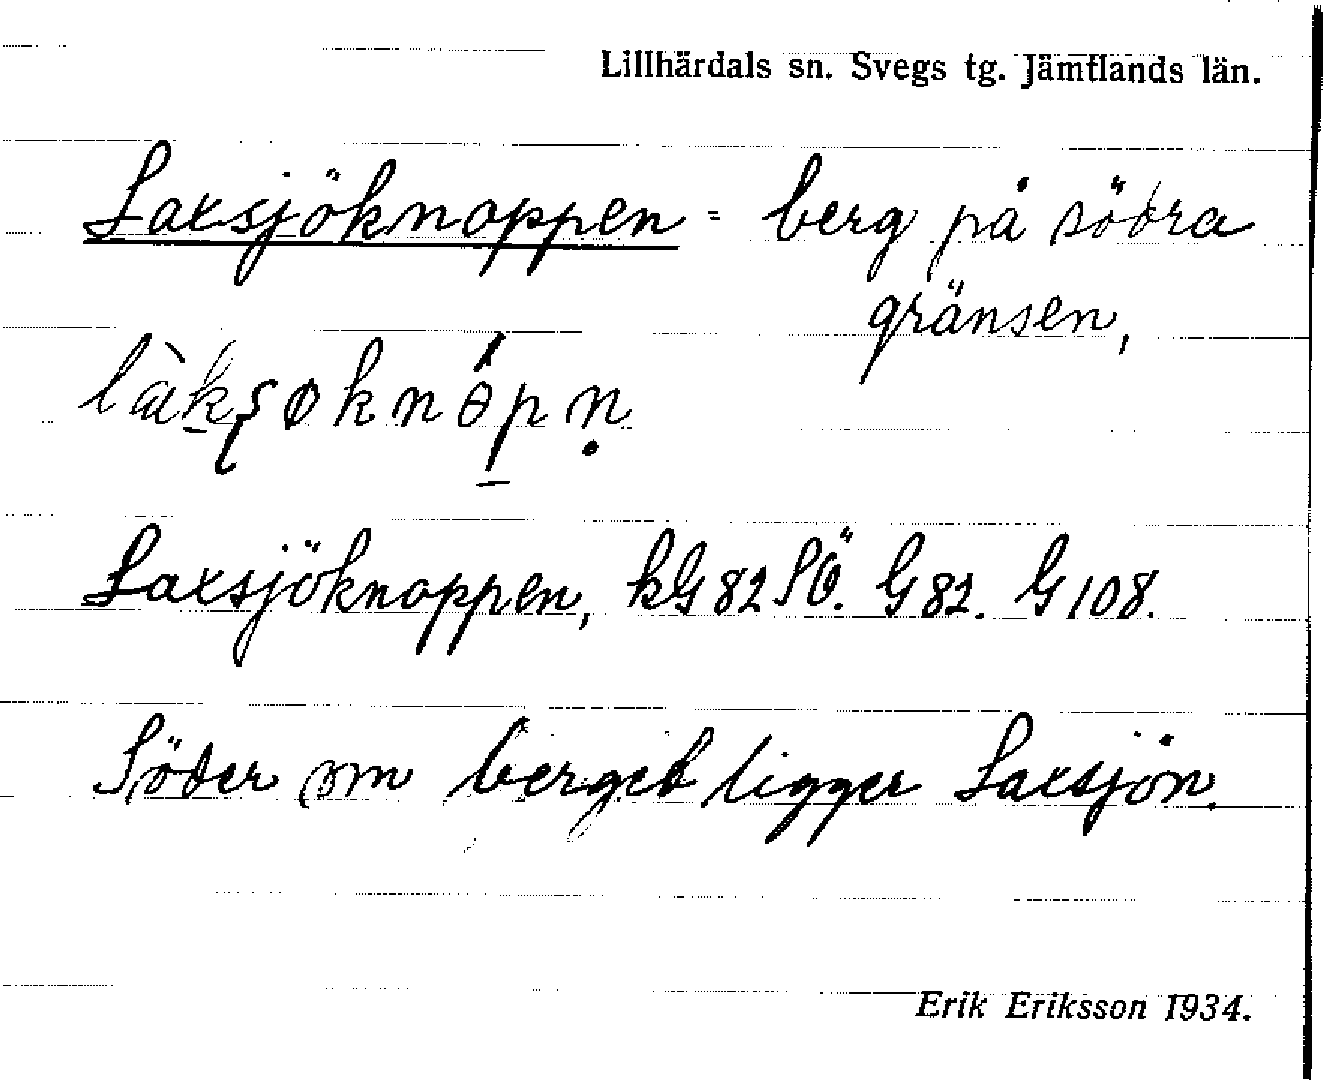 Lillhärdals sn. Svegs tg. Jämtlands län.
Laxsjöknoppen = berg på södra
gränsen,
Laxsjöknoppen, kG 82 SÖ. G 82. G 108.
Söder om berget ligger Laxsjön.
Erik Eriksson 1934.